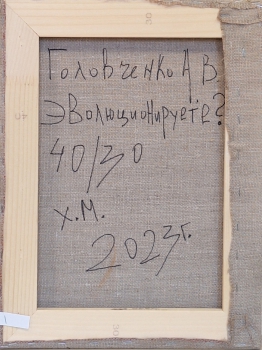 Головченко А В
Эволюционируете?
40/30
х.м.
2023г.